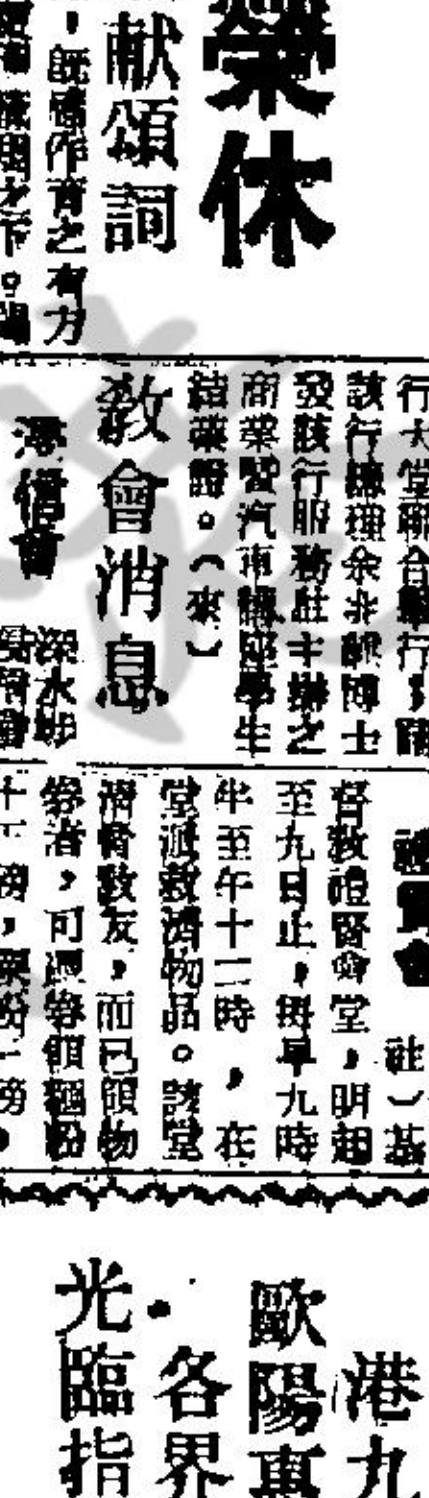 榮休
献頌詞
，既儲作育之有力
之下。
行大堂聯合舉行，
該行總理余兆麒博士
發該行服務社主辦之
商業暨汽車講座學生
結業證。（來）
教會消息
深水埗
禮賢會
社）基
督教禮賢會堂，明起
至九日止，每早九時
半至午十二時，在
堂派救濟物品。該堂
濟會教友，而已領物
券者，可憑券領麵粉
十磅，粟粉一磅，
港九
歐陽惠
各界
光臨指